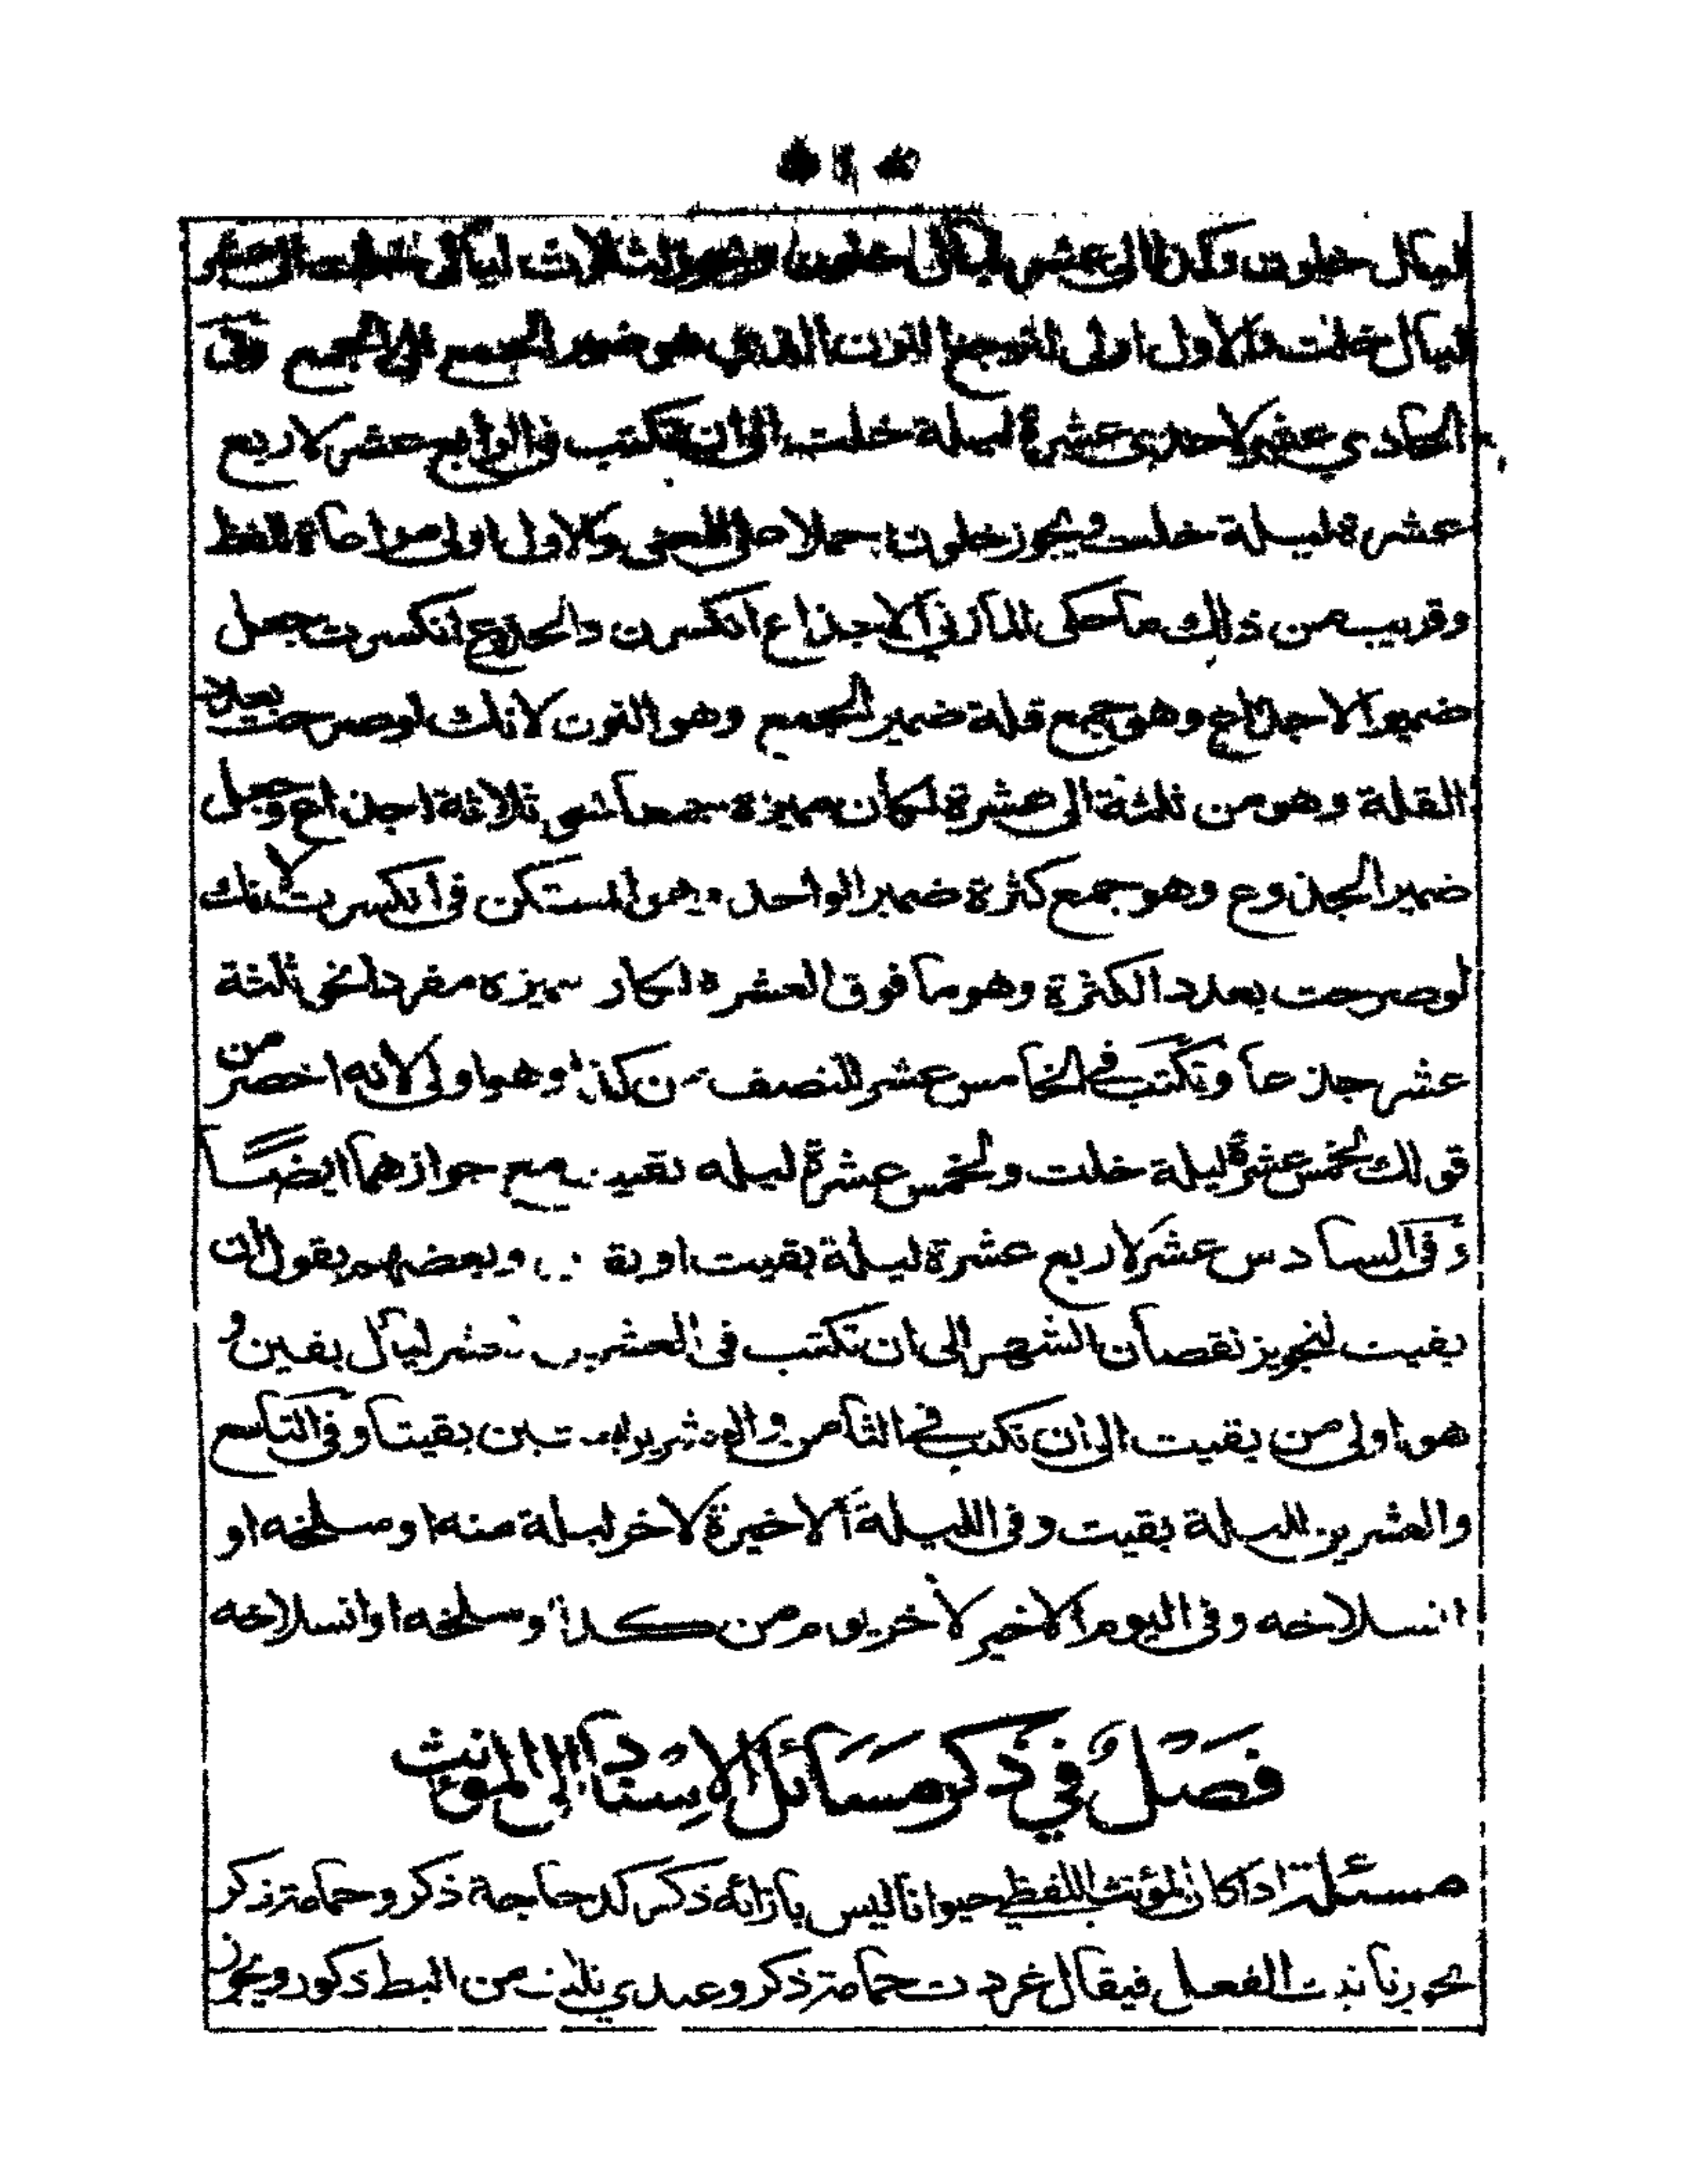 ليال خلون وكذا الى عشر ليالى خلون ويجوز لثلاث ليالى خلت الى عشر
ليال خلت والاول اولى لترجع النون الذي هو ضمير الجمع الى الجمع وفى
الحادي عشر لاحدى عشرة ليلة خلت الى ان تكتب فى الرابع عشر لاربع
عشرة ليلة خلت ويجوز خلون حملا على المعنى والاول اولى مراعاة للفظ
وقريب من ذلك ما حكى المازني الاجذاع انكسرن والجذوع انكسرت جعل
ضمير الاجذاع وهو جمع قلة ضمير الجمع وهو النون لانك لو صرحت بعدد
القلة وهو من ثلثة الى عشرة لكان مميزه جمعا نحو ثلاثة اجذاع وجعل
ضمير الجذوع وهو جمع كثرة ضمير الواحد وهو المستكن فى انكسرت لانك
لو صرحت بعدد الكثرة وهو ما فوق العشرة لكان مميزه مفردا نحو ثلثة
عشر جذعا وتكتب فى الخامس عشر للنصف من كذا وهو اولى لانه اخصر من
قولك لخمس عشرة ليلة خلت ولخمس عشرة ليله بقين مع جوازهما ايضا
وفى السادس عشر لاربع عشرة ليلة بقيت او بقين وبعضهم يقول ان
بقيت لتجويز نقصان الشهر الى ان تكتب فى العشرين لعشر ليال بقين و
هو اولى من بقيت الى ان تكتب فى الثامن والعشرين لليلتين بقيتا وفى التاسع
والعشرين لليلة بقيت وفى الليلة الاخيرة لاخر ليلة منه او سلخه او
انسلاخه وفى اليوم الاخير لاخر يوم من كذا او سلخه او انسلاخه
فصل في ذكر مسائل الاسناد الى المؤنث
مسئلة اذا كان المؤنث اللفظي حيوانا ليس بازائه ذكر كدجاجة ذكر وحمامة ذكر
يجوز تانيث الفعل فيقال غردت حمامة ذكر وعندي ثلث من البط ذكور ويجوز